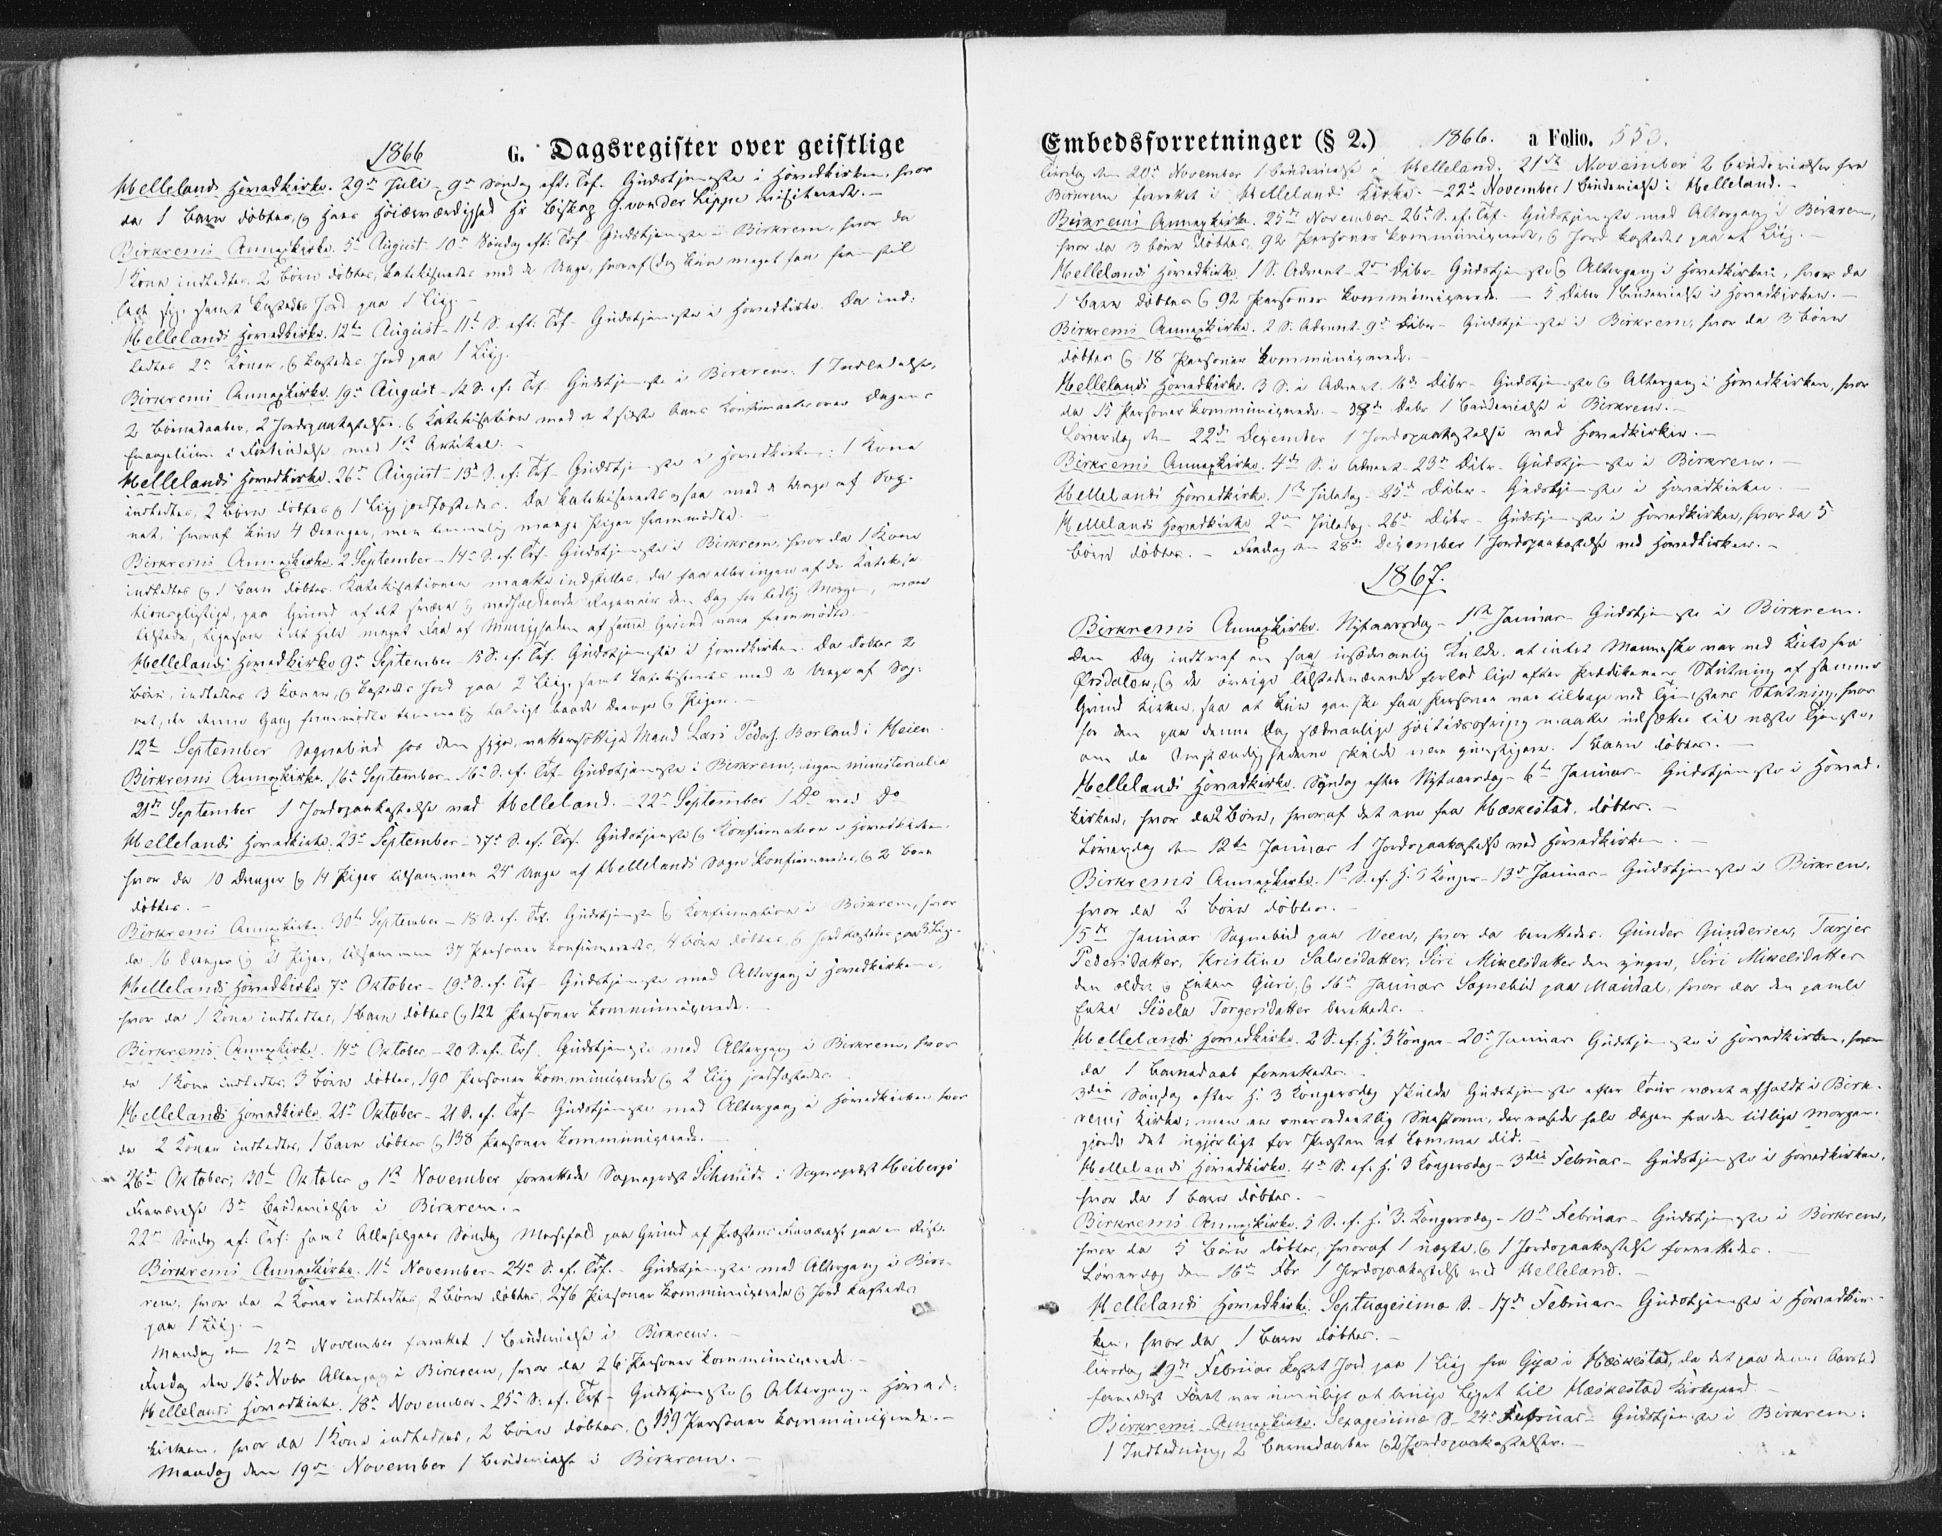 1866 G. Dagsregister over geistlige
Hellelands Hovedkirke. 29de Juli - 9de Søndag eft. Trf. Gudstjeneste i Hovedkirken, hvor
da 1 Barn døbtes, og Hans Høiærværdighed Hr Biskop J. von der Lippe visiterede. -
Birkrems Annexkirke. 5te August - 10de Søndag eft. Trf. Gudstjeneste i Birkrem, hvor da
1 Kone indledtes, 2 Børn døbtes, katekiseredes med de Unge, hvoraf dog kun meget faa fremstil
lede sig, samt kastedes Jord paa 1 Liig. -
Hellelands Hovedkirke. 12te August - 11te S. eft. Trf. Gudstjeneste i Hovedkirke. Da ind-
ledtes 2de Koner, og kastedes Jord paa 1 Liig.
Birkrems Annexkirke. 19de August - 12 S. ef. Trf. Gudstjeneste i Birkrem: 1 Indledelse,
2 Børnedaaber, 2 Jordspaakastelser og Katekisation med de Konfirmanter over Dagens
Evangelium i Forbindelse med 1ste Artikel. -
Hellelands Hovedkirke. 26de August - 13de S. ef. Trf. Gudstjeneste i Hovedkirken: 1 Kone
indledtes, 2 Børn døbtes og 1 Liig jordfæstedes. Da katekiseredes ogsaa med de Unge af Sog-
net, hvoraf kun 4 Drenge, men temmelig mange Piger fremmødte. -
Birkrems Annexkirke. 2 September - 14de S. ef. Trf. Gudstjeneste i Birkrem, hvor da 1 Kone
indledtes og 1 Barn døbtes. Katekisationen maatte indstilles, da faa eller ingen af de Katekisa
tionspligtige, paa Grund af det svære og vedholdende Regnveir den Dag fra tidlig Morgen, vare
tilstede, ligesom i det Hele meget faa af Menigheden af samme Grund vare fremmødte. -
Hellelands Hovedkirke 9de September - 15 S. ef. Trf. Gudstjeneste i Hovedkirken. Da døbtes 2
Børn, indledtes 3 Koner, og kastedes Jord paa 2 Liig, samt katekiseredes med de Unge af Sog-
net, der denne Gang fremmødte temmelig talrigt baade Drenge og Piger. -
12te September Sognebud hos den syge, vattersottige Mand Lars Peders. Borland i Heien.
Birkrems Annexkirke. 16de September - 16de S. ef. Trf. Gudstjeneste i Birkrem; ingen ministerialia
21de September 1 Jordspaakastelse ved Helleland. - 22de September 1 Do ved Do
Hellelands Hovedkirke. 23de September - 17de S. ef. Trf. Gudstjeneste og Konfirmation i Hovedkirken,
hvor da 10 Drenge og 14 Piger tilsammen 24 Unge af Hellelands Sogn konfirmeredes, og 2 Børn
døbtes. -
Birkrems Annexkirke. 30te September - 18 S. ef. Trf. Gudstjeneste og Konfirmation i Birkrem, hvor
da 16 Drenge og 21 Piger, tilsammen 37 Personer konfirmeredes, 4 Børn døbtes, og Jord kastedes paa 3 Liig.
Hellelands Hovedkirke 7de Oktober - 19de S. ef. Trf. Gudstjeneste med Altergang i Hovedkirken,
hvor da 1 Kone indledtes, 1 Barn døbtes og 122 Personer kommunicerede.
Birkrems Annexkirke. 14de Oktober - 20 S. ef. Trf. Gudstjeneste med Altergang i Birkrem, hvor
da 1 Kone indledtes, 3 Børn døbtes, 190 Personer kommunicerede og 2 Liig jordfæstedes.
Hellelands Hovedkirke. 21de Oktober - 21 S. ef. Trf. Gudstjeneste med Altergang i Hovedkirken hvor
da 2 Koner indledtes, 1 Barn døbtes og 138 Personer kommunicerede.
26de Oktober, 30te Oktober og 1ste November forrettede Sognepræst Schmidt i Sognepræst Heibergs
Fraværelse 3de Brudevielser i Birkrem. -
22de Søndag ef. Trf. samt Allehelgens Søndag Messefald paa Grund af Præstens Fraværelse paa en Reise.
Birkrems Annexkirke. 11te November - 24de S. ef. Trf. - Gudstjeneste med Altergang i Birk-
rem, hvor da 2 Koner indledtes, 2 Børn døbtes, 276 Personer kommunicerede og Jord kastedes
paa 1 Liig. -
Mandag den 12te November forrettet 1 Brudevielse i Birkrem. -
Fredag den 16de Novbr Altergang i Birkrem, hvor da 26 Personer kommunicerede. -
Hellelands Hovedkirke. 18de November - 25de S. ef. Trf - Gudstjeneste og Altergang i Hoved-
kirken, hvor da 1 Kone indledtes, 2 Børn døbtes, og 159 Personer kommunicerede. -
Mandag den 19de November 1 Brudevielse i Birkrem. -
Embedsforretninger (§ 2.) 1866. a Folio. 553.
Tirsdag den 20de November 1 Brudevielse i Helleland; 21de November 2 Brudevielser fra
Birkrem forrettet i Hellelands Kirke. - 22de November 1 Brudevielse i Helleland. -
Birkrems Annexkirke. 25de November - 26de S. ef. Trf. Gudstjeneste med Altergang i Birkrem,
hvor da 3 Børn døbtes, 92 Personer kommunicerede, og Jord kastedes paa et Liig. -
Hellelands Hovedkirke. 1 S. Advent - 2den Decbr - Gudstjeneste og Altergang i Hovedkirken, hvor da
1 Barn døbtes og 92 Personer kommunicerede. - 5 Decbr 1 Brudevielse i Hovedkirken. -
Birkrems Annexkirke. 2 S. Advent - 9de Decbr - Gudstjeneste i Birkrem, hvor da 3 Børn
døbtes og 18 Personer kommunicerede. -
Hellelands Hovedkirke. 3 S. i Advent. 16de Decbr - Gudstjeneste og Altergang i Hovedkirken, hvor
da 15 Personer kommunicerede. - Decbr 1 Brudevielse i Birkrem. -
Løverdag den 22de Dezember 1 Jordspaakastelse ved Hovedkirken. -
Birkrems Annexkirke. 4de S. i Advent - 23de Decbr. Gudstjeneste i Birkrem. -
Hellelands Hovedkirke. 1ste Juledag - 25de Decbr - Gudstjeneste i Hovedkirken. -
Hellelands Hovedkirke 2den Juledag - 26de Decbr - Gudstjeneste i Hovedkirken, hvor da 5
Børn døbtes. - Fredag den 28de Dezember 1 Jordspaakastelse ved Hovedkirken. -
1867.
Birkrems Annexkirke. Nytaarsdag - 1ste Januar - Gudstjeneste i Birkrem.
Den Dag indtraf en saa usædvanlig Kulde, at intet Menneske var ved Kirke fra
Ørsdalen, og de øvrige Tilstedeværende forlod lige efter Prædikenens Slutning af samme
Grund Kirken, saa at kun ganske faa Personer var tilbage ved Tjenestens Slutning, hvor
for den paa denne Dag sædvanlige Høitidsofring maatte udsættes til næste Tjeneste,
om da Omstændighederne skulde være gunstigere. 1 Barn døbtes. -
Hellelands Hovedkirke. Søndag efter Nytaarsdag - 6te Januar - Gudstjeneste i Hoved-
kirken, hvor da 2 Børn, hvoraf det ene fra Heskestad, døbtes. -
Løverdag den 12te Januar 1 Jordspaakastelse ved Hovedkirken. -
Birkrems Annexkirke. 1ste S. ef. H. 3 Konger - 13de Januar - Gudstjeneste i Birkrem,
hvor da 2 Børn døbtes. -
15de Januar Sognebud paa Veen, hvor da berettedes Gunder Gundersen, Tarjer
Pedersdatter, Kristine Salvesdatter, Siri Mikelsdatter den yngre, Siri Mikelsdatter
den ældre og Enken Guri; og 16de Januar Sognebud paa Mandal, hvor da den gamle
Enke Sisela Torgersdatter berettedes.
Hellelands Hovedkirke. 2 S. ef. H. 3 Konger - 20de Januar Gudstjeneste i Hovedkirken, hvor
da 1 Barnedaab forrettedes. -
3die Søndag efter H. 3 Kongersdag skulde Gudstjeneste efter Tour været afholdt i Birk-
rems Kirke; men en overordentlig Snestorm, der rasede hele Dagen fra den tidlige Morgen,
gjorde det ugjørligt for Præsten at komme did. -
Hellelands Hovedkirke. 4de S. ef. H. 3 Kongersdag - 3die Februar - Gudstjeneste i Hovedkirken,
hvor da 1 Barn døbtes. -
Birkrems Annexkirke. 5 S. ef. H. 3. Kongersdag - 10de Februar - Gudstjeneste i Birkrem,
hvor da 5 Børn døbtes, hvoraf 1 uægte, og 1 Jordspaakastelse forrettedes.
Løverdag den 16de Fbr 1 Jordspaakastelse ved Helleland. -
Hellelands Hovedkirke. Septuagesima S. - 17de Februar - Gudstjeneste i Hovedkir-
ken, hvor da 1 Barn døbtes. -
Tirsdag 19de Februar kastet Jord paa 1 Liig fra Gya i Heskestad, da det paa denne Aarstid
formedelst Føret var umuligt at bringe Liget til Heskestad Kirkegaard. -
Birkrems Annexkirke. Sexagesima S. - 24de Februar - Gudstjeneste i Birkrem:
1 Indledning, 2 Barnedaaber og 2 Jordspaakastelser. -